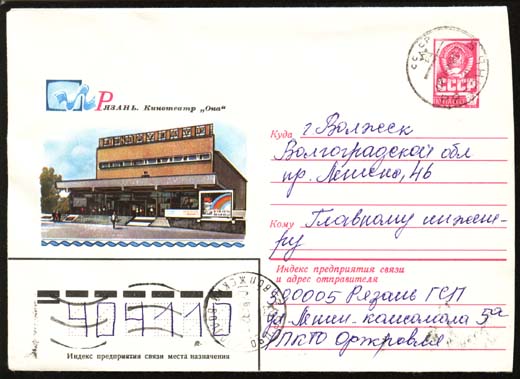 Рязань. Кинотеатр „Ока"
СССР
Куда г Волжск
Волгоградской обл
пр. Ленина, 46
Кому Главному инжене-
ру
Индекс предприятия связи
и адрес отправителя
390005 Рязань ГСП
ул Ленин-комсомола 5а
Индекс предприятия связи места назначения